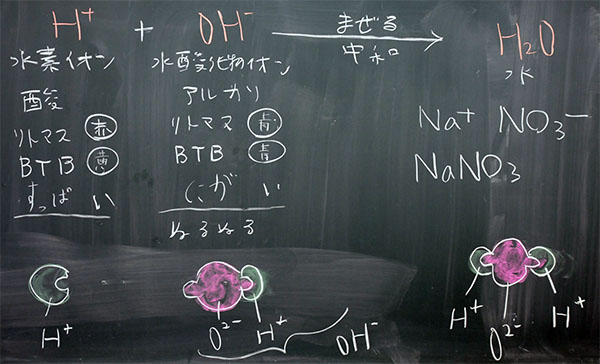 H⁺ + OH⁻ まぜる 中和 H₂O
水素イオン 水酸化物イオン 水
酸 アルカリ
リトマス 赤 リトマス 青 Na⁺ NO₃⁻
BTB 黄 BTB 青 NaNO₃
すっぱい にがい
ぬるぬる
H⁺ O²⁻ H⁺ OH⁻ H⁺ O²⁻ H⁺